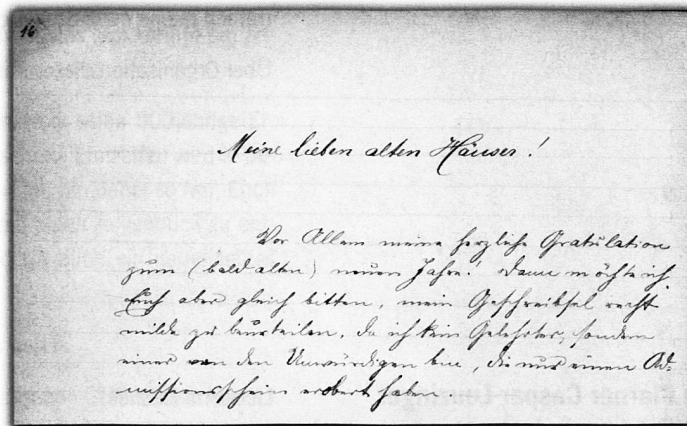 16
Meine lieben alten Häuser!
Vor Allem meine herzliche Gratulation
zum (bald alten) neuen Jahre! Dann möchte ich
Euch aber gleich bitten, mein Geschreibsel recht
milde zu beurteilen, da ich kein Gelehrter, sondern
einer von den Unwürdigen bin, die nur einen Ad-
missionsschein erobert haben